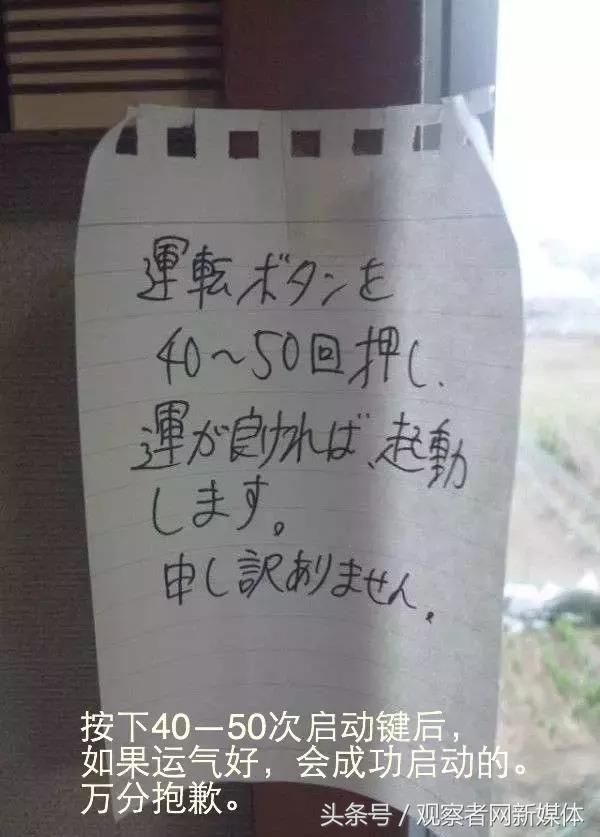 運転ボタンを
40〜50回押し、
運が良ければ、起動
します。
申し訳ありません。
按下40—50次启动键后，
如果运气好，会成功启动的。
万分抱歉。
头条号／观察者网新媒体